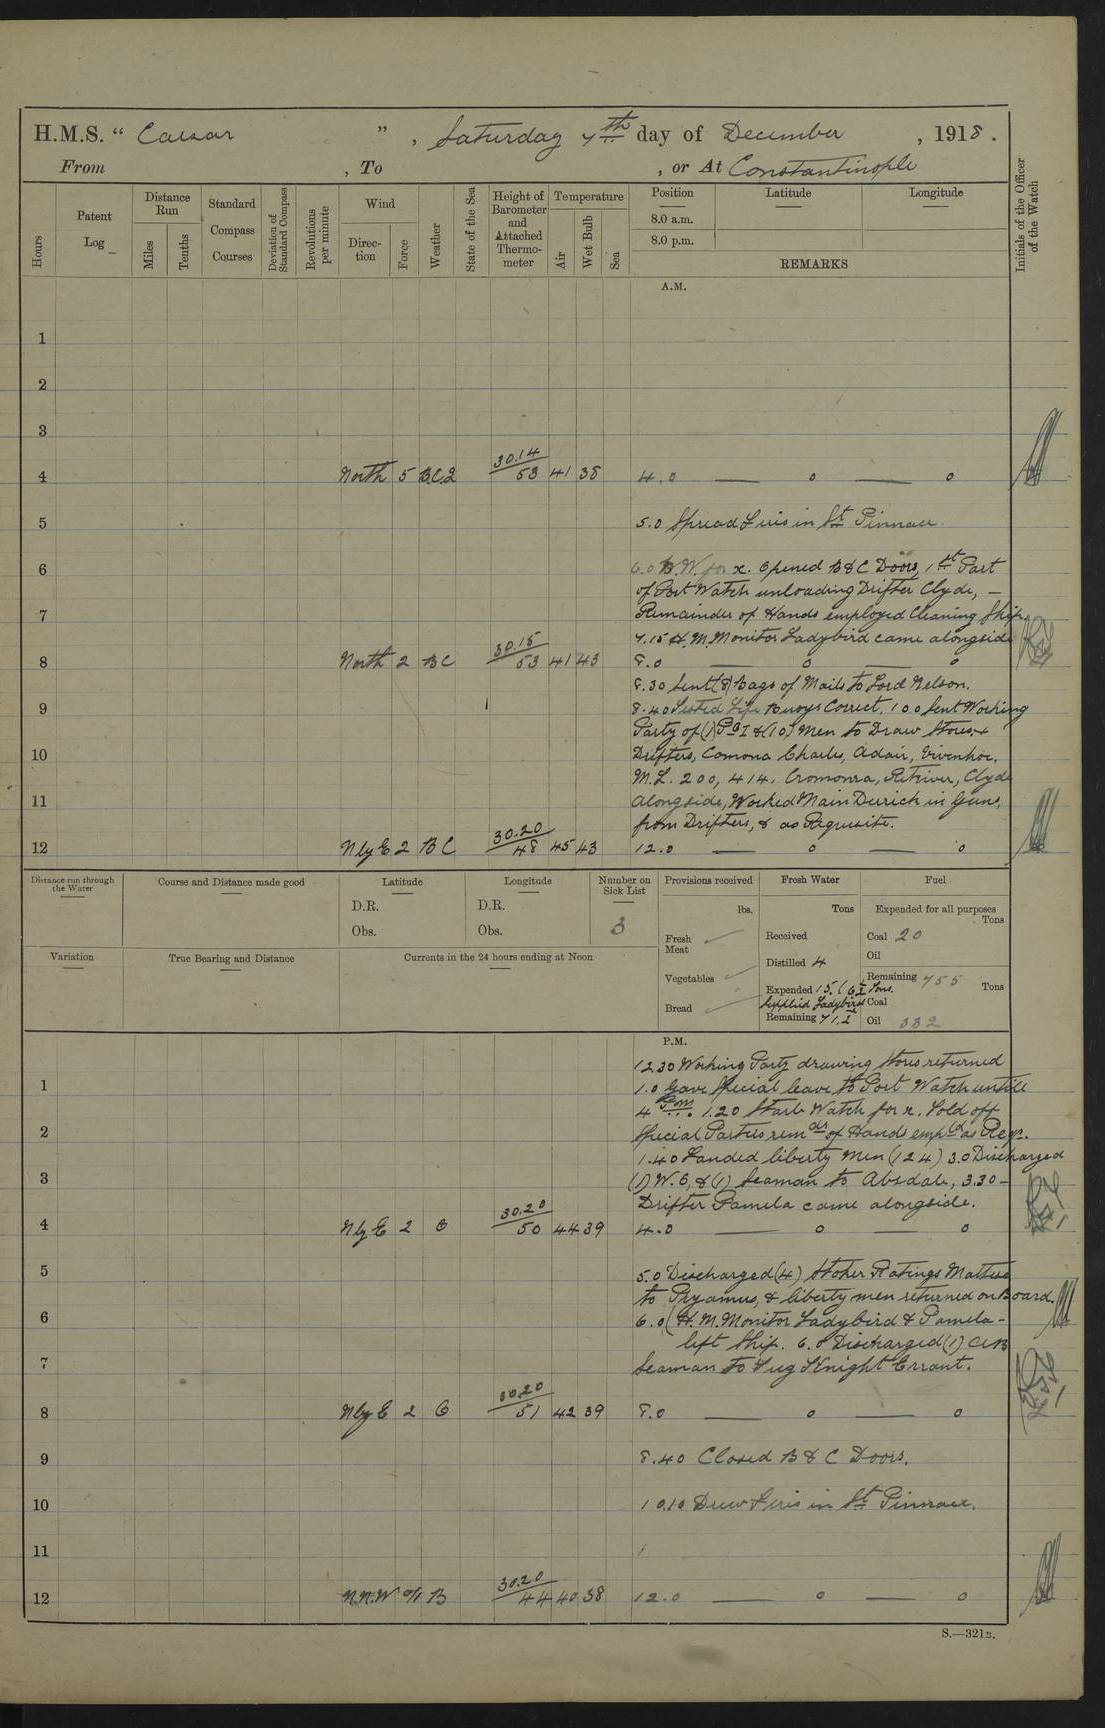 H.M.S. “ Caesar ” , Saturday 7th day of December , 1918 .
From , To , or At Constantinople
Hours
Patent Log
Distance Run
Miles
Tenths
Standard Compass Courses
Deviation of Standard Compass
Revolutions per minute
Wind
Direc- tion
Force
Weather
State of the Sea
Height of Barometer and Attached Thermo- meter
Temperature
Air
Wet Bulb
Sea
Position
8.0 a.m.
8.0 p.m.
Latitude
Longitude
REMARKS
Initials of the Officer of the Watch
A.M.
1
2
3
30.14
4 North 5 B.C.2 53 41 38 4.0 — o — o
5 5.0 Spread Firis in St Pinnace.
6 6.0 B.W. for x. Opened B & C Doors, 1st Part
of Port Watch unloading Drifter Clyde, –
7 Remainder of Hands employed Cleaning Ship.
7.15 H.M. Monitor Ladybird came alongside
30.15
8 North 2 BC 53 41 43 8.0 — o — o
8.30 Sent (8) Bags of Mails to Lord Nelson.
9 8.40 Tested Life Buoys Correct. 10.0 Sent Working
Party of (1) P.O I & (10) Men to Draw Stores,
10 Drifters, Comona Charles, Adair, Vivenhoe,
M.L. 200, 414, Cromonra, Retriver, Clyde
11 Alongside, Worked Main Derrick in Guns,
from Drifters, & as Requisite.
30.20
12 Nly E 2 BC 48 45 43 12.0 — o — o
Distance run through the Water
Course and Distance made good
Latitude
D.R.
Obs.
Longitude
D.R.
Obs.
Number on Sick List
3
Provisions received
lbs.
Fresh Meat
Vegetables
Bread
Fresh Water
Tons
Received
Distilled 4
Expended 15.
Supplied Ladybird
Remaining 71.2
Fuel
Expended for all purposes
Tons
Coal 20
Oil
Remaining 755 Tons
Coal
Oil 332
Variation
True Bearing and Distance
Currents in the 24 hours ending at Noon
P.M.
12.30 Working Party drawing Stores returned
1 1.0 Gave Special leave to Port Watch untill
4 Pm. 1.20 Starb Watch for x. Told off
2 Special Parties remdr of Hands empld as Reqr.
1.40 Landed liberty men (124) 3.0 Discharged
3 (1) W.O, & (1) Seaman to Absdale, 3.30 –
Drifter Pamela came alongside.
30.20
4 Nly E 2 O 50 44 39 4.0 — o — o
5 5.0 Discharged (4) Stoker Ratings
to Pryamus, & liberty men returned on Board.
6 6.0 (H.M. Monitor Ladybird & Pamela –
left Ship. 6.0 Discharged (1) AB
7 Seaman to Tug Knight Errant.
30.20
8 Nly E 2 O 51 42 39 8.0 — o — o
9 8.40 Closed B & C Doors.
10 10.10 Drew Firis in St Pinnace.
11
30.20
12 N.N.W 0/1 B 44 40 38 12.0 — o — o
S.—321B.